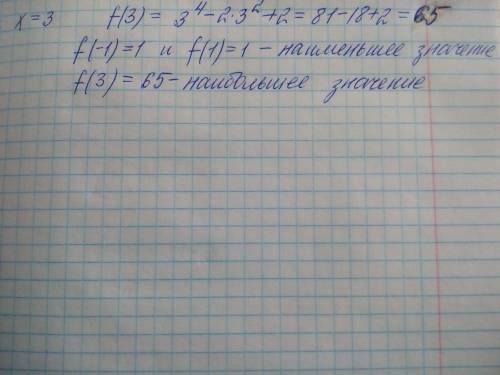 x=3 f(3) = 3⁴-2·3²+2 = 81-18+2 = 65
f(-1)=1 и f(1)=1 - наименьшее значение
f(3) = 65 - наибольшее значение